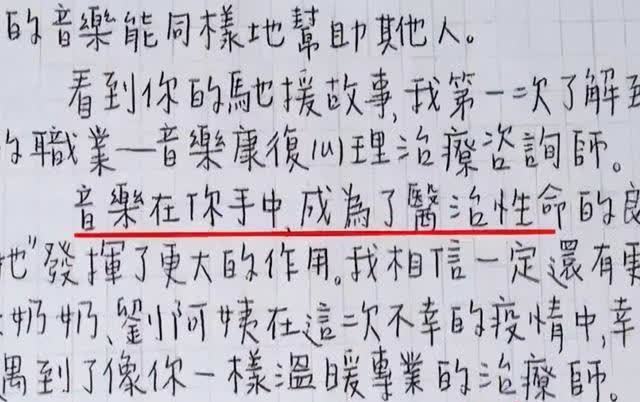 的音樂能同樣地幫助其他人。
看到你的馳援故事,我第一次了解到
的職業—音樂康復心理治療咨詢師。
音樂在你手中,成為了醫治性命的良
地"發揮了更大的作用。我相信一定還有更
奶奶、劉阿姨在這次不幸的疫情中,幸
遇到了像你一樣溫暖專業的治療師。